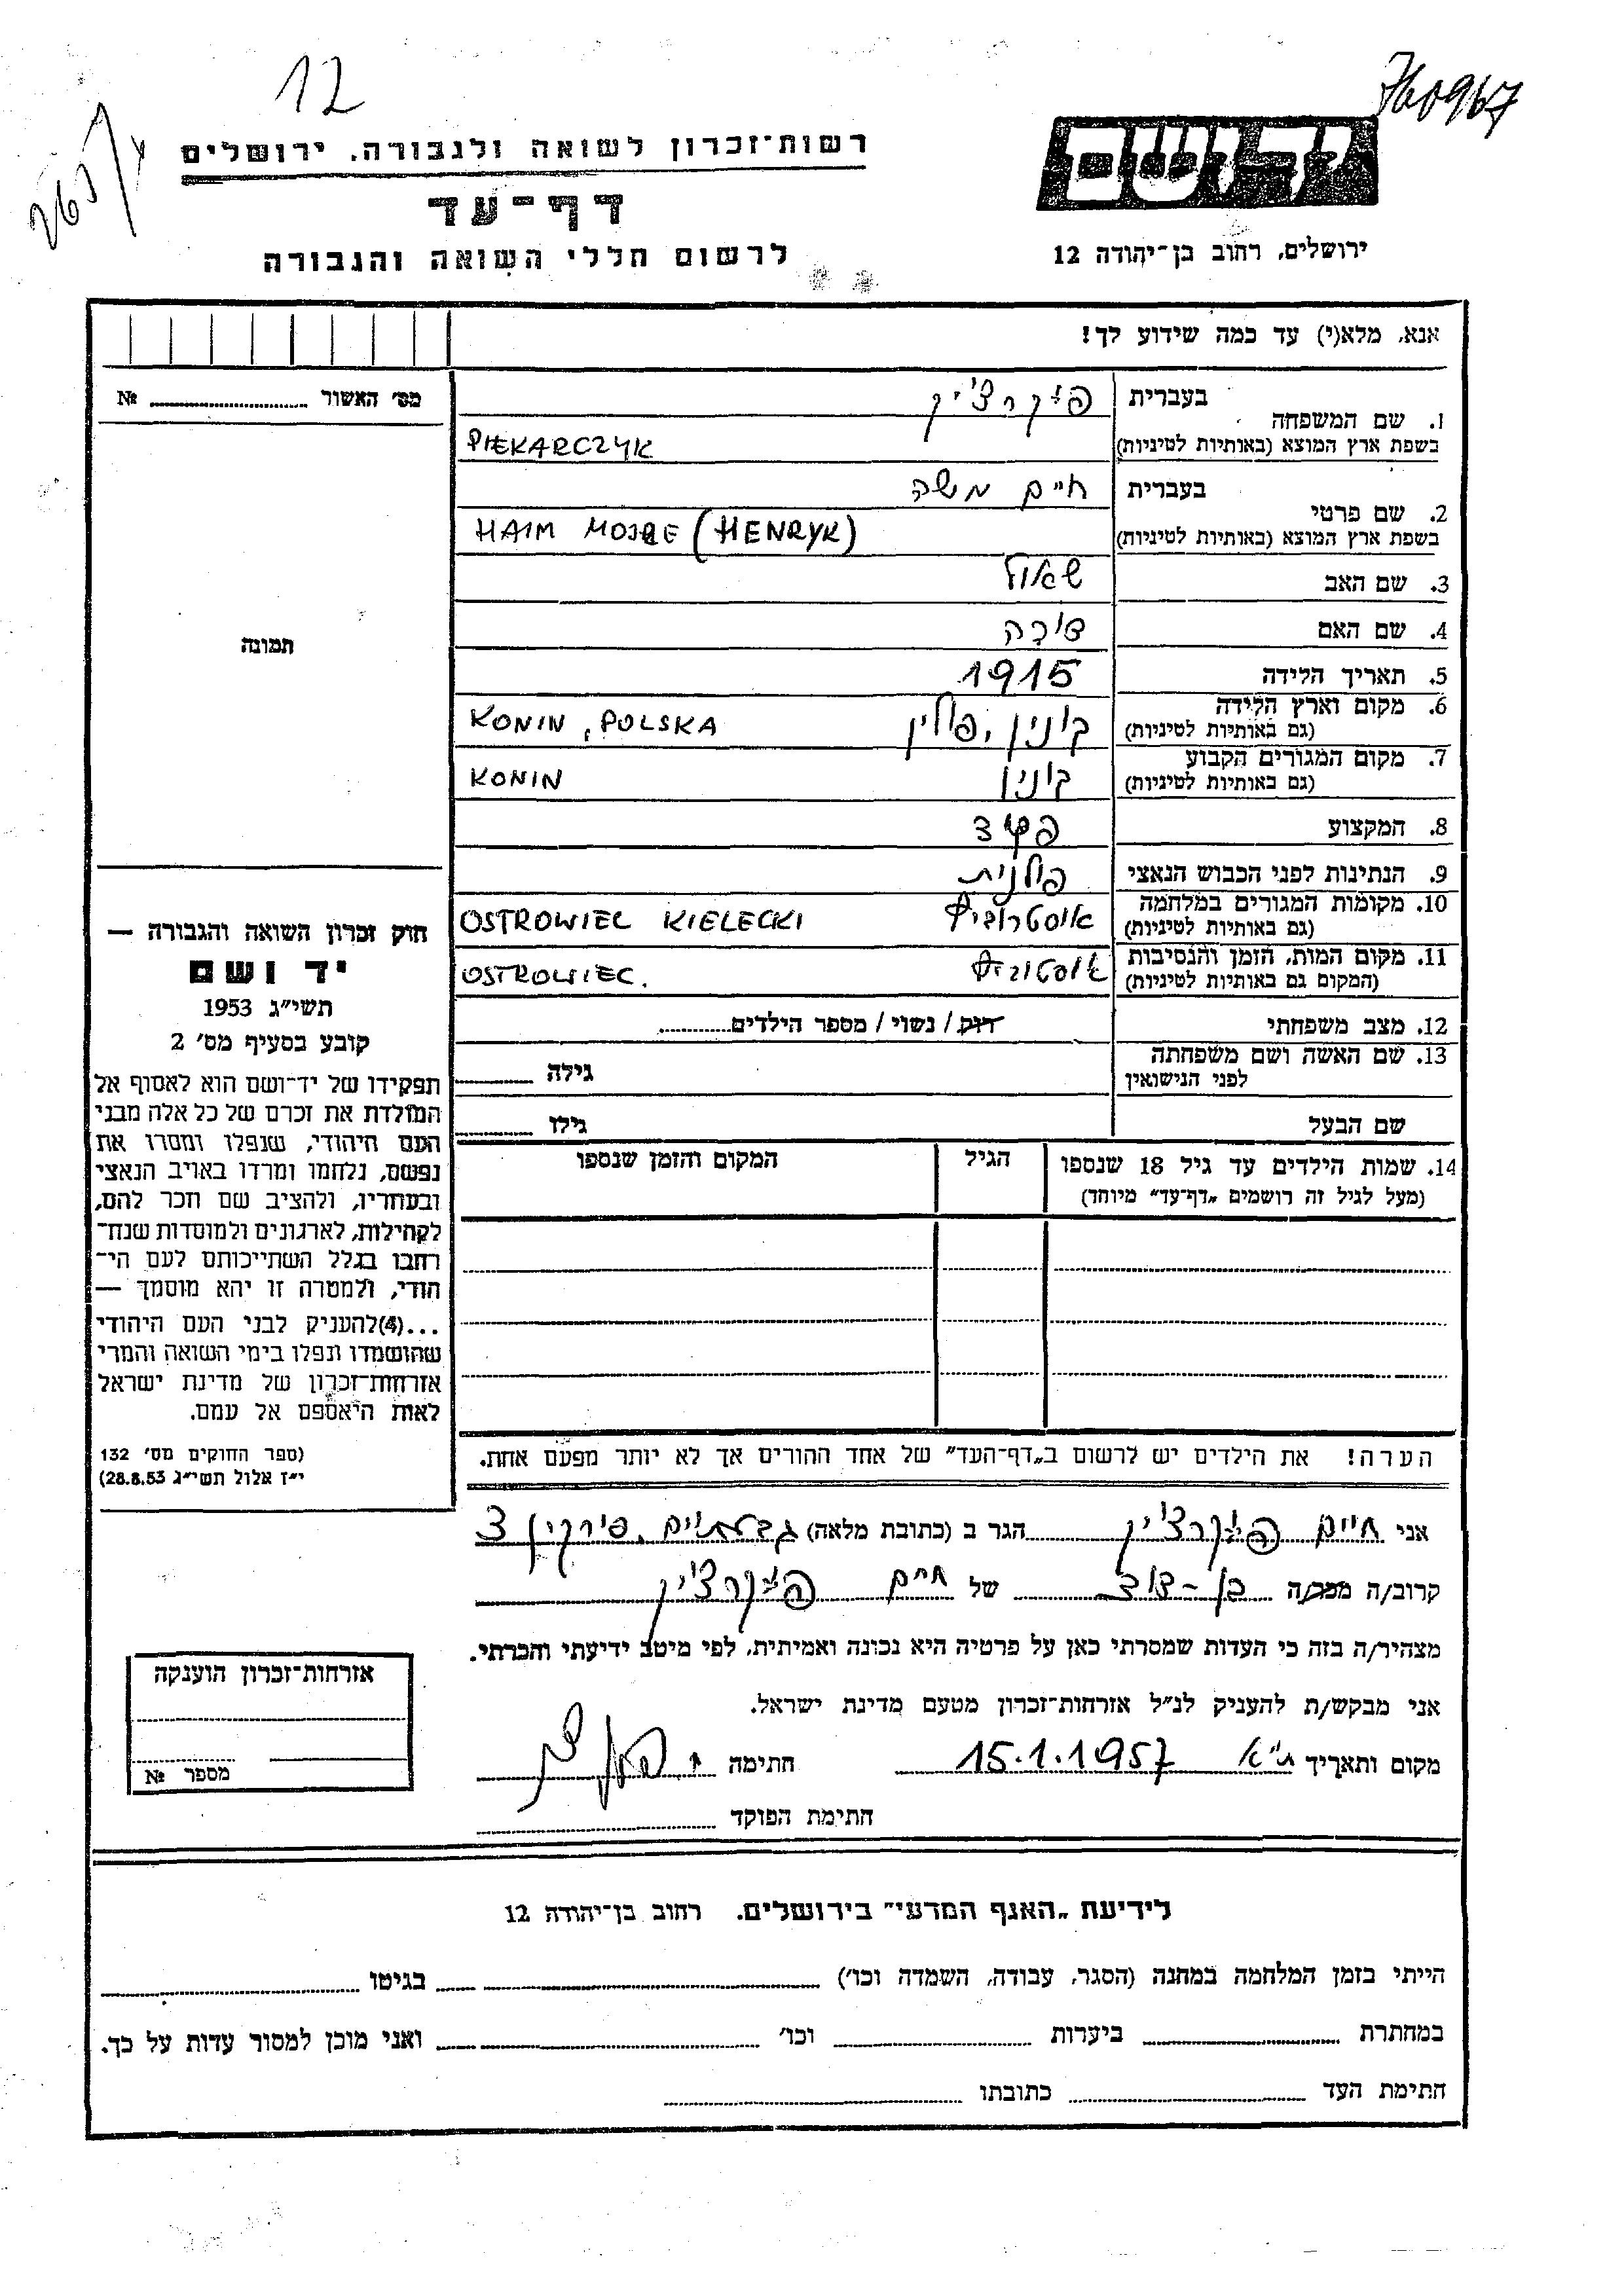 12
760967
רשות־זכרון לשואה ולגבורה. ירושלים
דף־עד
לרשום חללי השואה והגבורה
יד ושם
ירושלים, רחוב בן־יהודה 12
אנא, מלא(י) עד כמה שידוע לך!
מס׳ האשור № 
1. שם המשפחה בעברית פיקרצ׳יק
בשפת ארץ המוצא (באותיות לטיניות) PIEKARCZYK
2. שם פרטי בעברית חיים משה
בשפת ארץ המוצא (באותיות לטיניות) HAIM MOJRE (HENRYK)
3. שם האב שאול
4. שם האם
5. תאריך הלידה 1915
6. מקום וארץ הלידה (גם באותיות לטיניות) קונין, פולין KONIN, POLSKA
7. מקום המגורים הקבוע (גם באותיות לטיניות) קונין KONIN
8. המקצוע פקיד
9. הנתינות לפני הכבוש הנאצי פולנית
10. מקומות המגורים במלחמה (גם באותיות לטיניות) OSTROWIEC KIELECKI
11. מקום המות, הזמן והנסיבות (המקום גם באותיות לטיניות) OSTROWIEC.
12. מצב משפחתי רוק / נשוי / מספר הילדים
13. שם האשה ושם משפחתה לפני הנישואין גילה
שם הבעל גילו
14. שמות הילדים עד גיל 18 שנספו הגיל המקום והזמן שנספו
(מעל לגיל זה רושמים „דף־עד״ מיוחד)
הערה! את הילדים יש לרשום ב„דף־העד״ של אחד ההורים אך לא יותר מפעם אחת.
תמונה
חוק זכרון השואה והגבורה —
יד ושם
תשי״ג 1953
קובע בסעיף מס׳ 2
תפקידו של יד־ושם הוא לאסוף אל
המולדת את זכרם של כל אלה מבני
העם היהודי, שנפלו ומסרו את
נפשם, נלחמו ומרדו באויב הנאצי
ובעוזריו, ולהציב שם וזכר להם,
לקהילות, לארגונים ולמוסדות שנח־
רבו בגלל השתייכותם לעם הי־
הודי, ולמטרה זו יהא מוסמך —
...(4) להעניק לבני העם היהודי
שהושמדו ונפלו בימי השואה והמרי
אזרחות־זכרון של מדינת ישראל
לאות היאספם אל עמם.
(ספר החוקים מס׳ 132
י״ז אלול תשי״ג 28.8.53)
אני חיים פיקרצ׳יק הגר ב (כתובת מלאה) גבעתיים, סירקין 3
קרוב/ה מכר/ה בן-דוד של חיים פיקרצ׳יק
מצהיר/ה בזה כי העדות שמסרתי כאן על פרטיה היא נכונה ואמיתית, לפי מיטב ידיעתי והכרתי.
אני מבקש/ת להעניק לנ״ל אזרחות־זכרון מטעם מדינת ישראל.
מקום ותאריך ת״א 15.1.1957 חתימה
חתימת הפוקד
אזרחות־זכרון הוענקה
מספר №
לידיעת „האגף המדעי״ בירושלים. רחוב בן־יהודה 12
הייתי בזמן המלחמה במחנה (הסגר, עבודה, השמדה וכו׳) בגיטו
במחתרת ביערות וכו׳ ואני מוכן למסור עדות על כך.
חתימת העד כתובתו